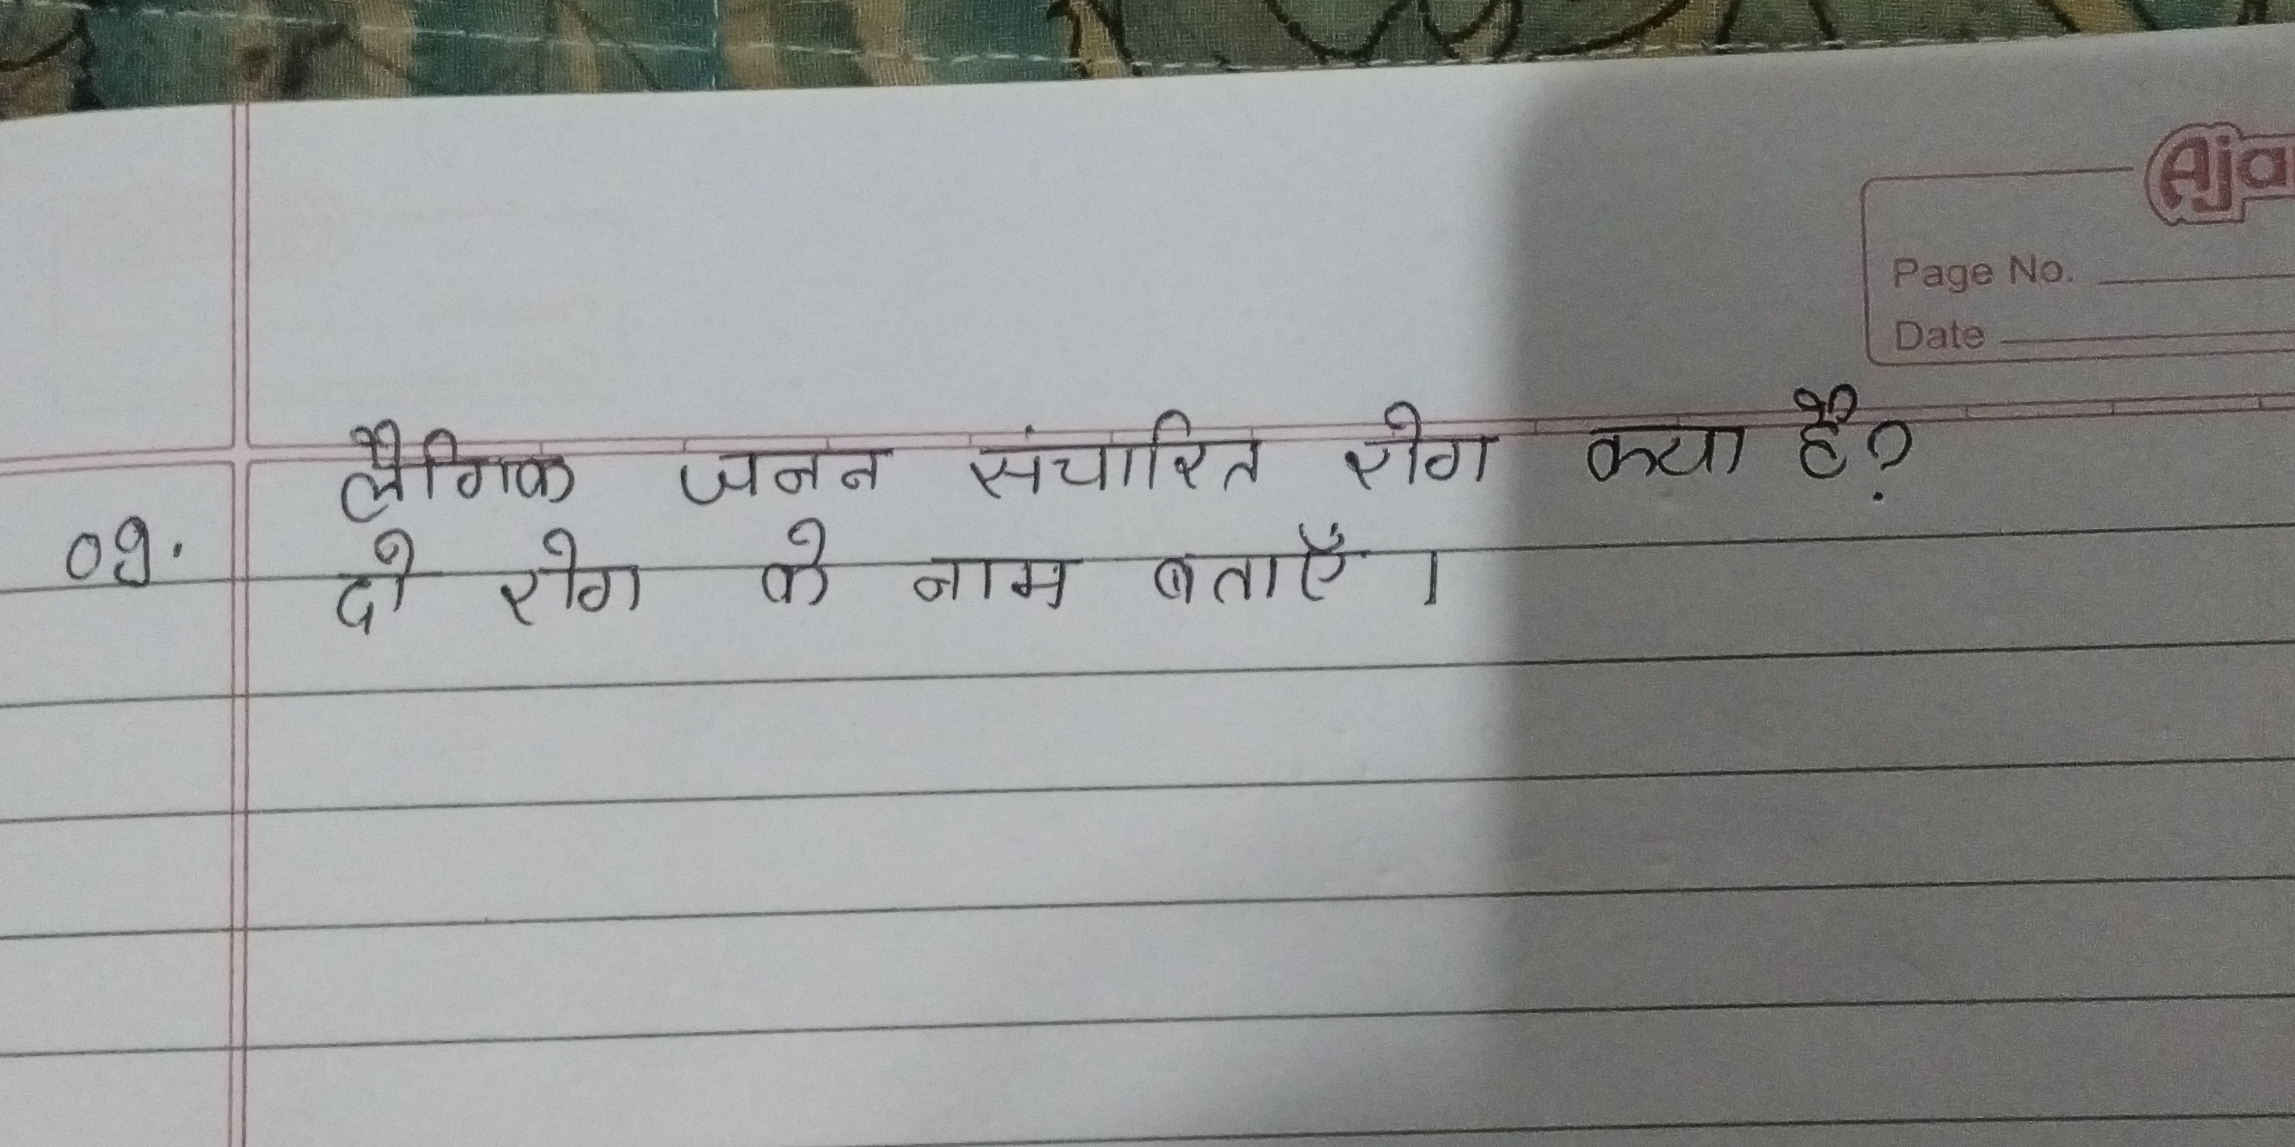 Aja
Page No.
Date
लैगिक जनन संचारित रोग क्या है?
09.
दो रोग के नाम बताएँ ।